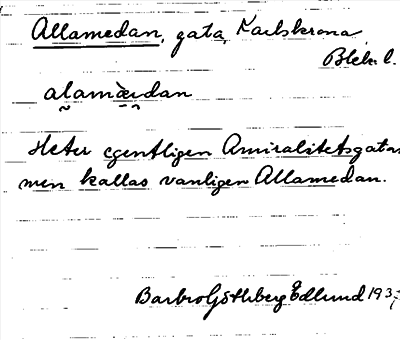 Allamedan, gata, Karlskrona
Blek. l.
alamæ̀ɪdan
Heter egentligen Amiralitetsgatan
men kallas vanligen Allamedan.
Barbro Göthberg Edlund 193